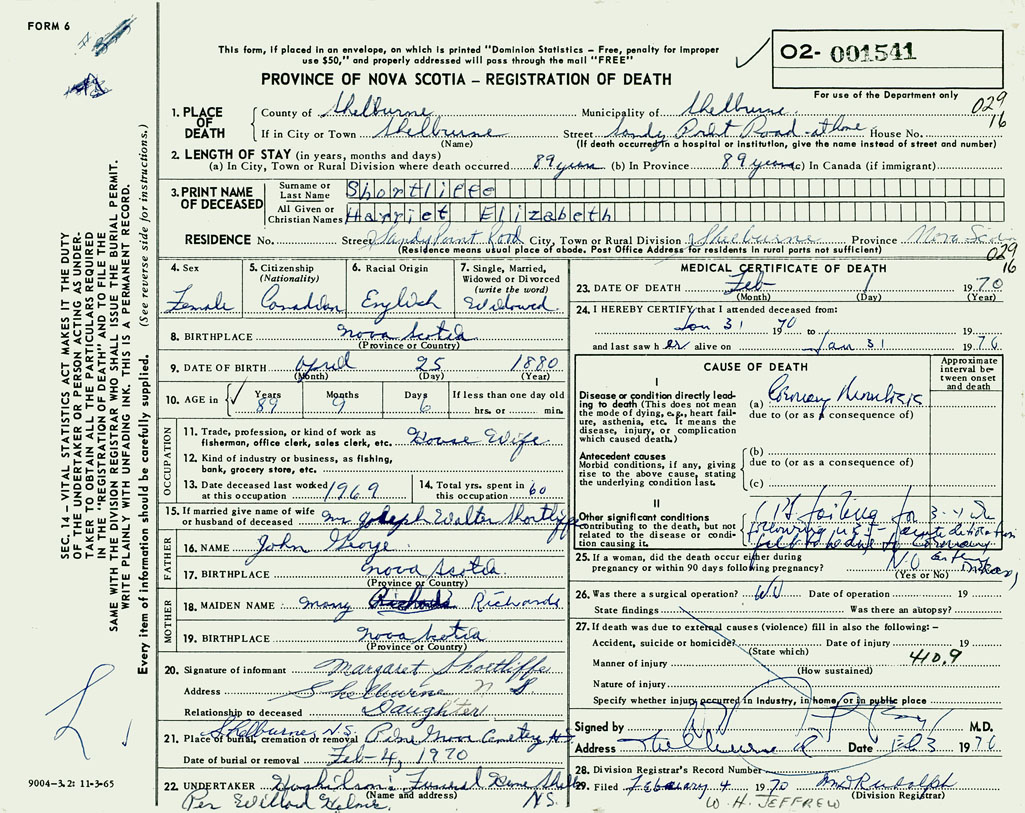 FORM 6
This form, if placed in an envelope, on which is printed "Dominion Statistics – Free, penalty for improper
use $50," and properly addressed will pass through the mail "FREE"
PROVINCE OF NOVA SCOTIA – REGISTRATION OF DEATH
O2- 001541
For use of the Department only
029
16
SEC. 14 – VITAL STATISTICS ACT MAKES IT THE DUTY
OF THE UNDERTAKER OR PERSON ACTING AS UNDER-
TAKER TO OBTAIN ALL THE PARTICULARS REQUIRED
IN THE "REGISTRATION OF DEATH" AND TO FILE THE
SAME WITH THE DIVISION REGISTRAR WHO SHALL ISSUE THE BURIAL PERMIT.
WRITE PLAINLY WITH UNFADING INK. THIS IS A PERMANENT RECORD.
Every item of information should be carefully supplied. (See reverse side for instructions.)
1. PLACE OF DEATH
County of Shelburne Municipality of Shelburne
If in City or Town Shelburne Street Sandy Point Road - at home House No.
(Name) (If death occurred in a hospital or institution, give the name instead of street and number)
2. LENGTH OF STAY (in years, months and days)
(a) In City, Town or Rural Division where death occurred 89 years (b) In Province 89 years (c) In Canada (if immigrant)
3. PRINT NAME OF DECEASED
Surname or Last Name Shortliffe
All Given or Christian Names Harriet Elizabeth
RESIDENCE No. Street Sandy Point Road City, Town or Rural Division Shelburne Province Nova Scotia
(Residence means usual place of abode. Post Office Address for residents in rural parts not sufficient)
029
16
4. Sex Female
5. Citizenship (Nationality) Canadian
6. Racial Origin English
7. Single, Married, Widowed or Divorced (write the word) Widowed
8. BIRTHPLACE Nova Scotia
(Province or Country)
9. DATE OF BIRTH April 25 1880
(Month) (Day) (Year)
10. AGE in Years 89 Months 9 Days 6 If less than one day old
hrs. or min.
OCCUPATION
11. Trade, profession, or kind of work as
fisherman, office clerk, sales clerk, etc. House Wife
12. Kind of industry or business, as fishing,
bank, grocery store, etc.
13. Date deceased last worked at this occupation 1969
14. Total yrs. spent in this occupation 60
15. If married give name of wife
or husband of deceased Mr Joseph Walter Shortliffe
FATHER
16. NAME John George
17. BIRTHPLACE Nova Scotia
(Province or Country)
MOTHER
18. MAIDEN NAME Mary Richards Richards
19. BIRTHPLACE Nova Scotia
(Province or Country)
20. Signature of informant Margaret Shortliffe
Address Shelburne N S
Relationship to deceased Daughter
21. Place of burial, cremation or removal Shelburne, N.S. Pine Grove Cemetery N.S.
Date of burial or removal Feb-4, 1970
22. UNDERTAKER Funeral Home
(Name and address) N.S.
Per
9004-3.2: 11-3-65
MEDICAL CERTIFICATE OF DEATH
23. DATE OF DEATH Feb- 1 1970
(Month) (Day) (Year)
24. I HEREBY CERTIFY that I attended deceased from:
Jan 31 1970 to 19
and last saw her alive on Jan 31 1970
CAUSE OF DEATH
Approximate interval between onset and death
I
Disease or condition directly lead-
ing to death (This does not mean
the mode of dying, e.g., heart fail-
ure, asthenia, etc. It means the
disease, injury, or complication
which caused death.)
(a) Coronary Thrombosis
due to (or as a consequence of)
Antecedent causes
Morbid conditions, if any, giving
rise to the above cause, stating
the underlying condition last.
(b)
due to (or as a consequence of)
(c)
II
Other significant conditions
contributing to the death, but not
related to the disease or condi-
tion causing it.
failing for 3-4
25. If a woman, did the death occur either during
pregnancy or within 90 days following pregnancy? NO
(Yes or No)
26. Was there a surgical operation? No Date of operation 19
State findings Was there an autopsy?
27. If death was due to external causes (violence) fill in also the following: –
Accident, suicide or homicide? Date of injury 19
(State which)
Manner of injury 410.9
(How sustained)
Nature of injury
Specify whether injury occurred in industry, in home, or in public place
Signed by M.D.
Address Shelburne Date Feb 3 1970
28. Division Registrar's Record Number
29. Filed February 4 1970 Rudolph
(Division Registrar)
W. H. JEFFREW